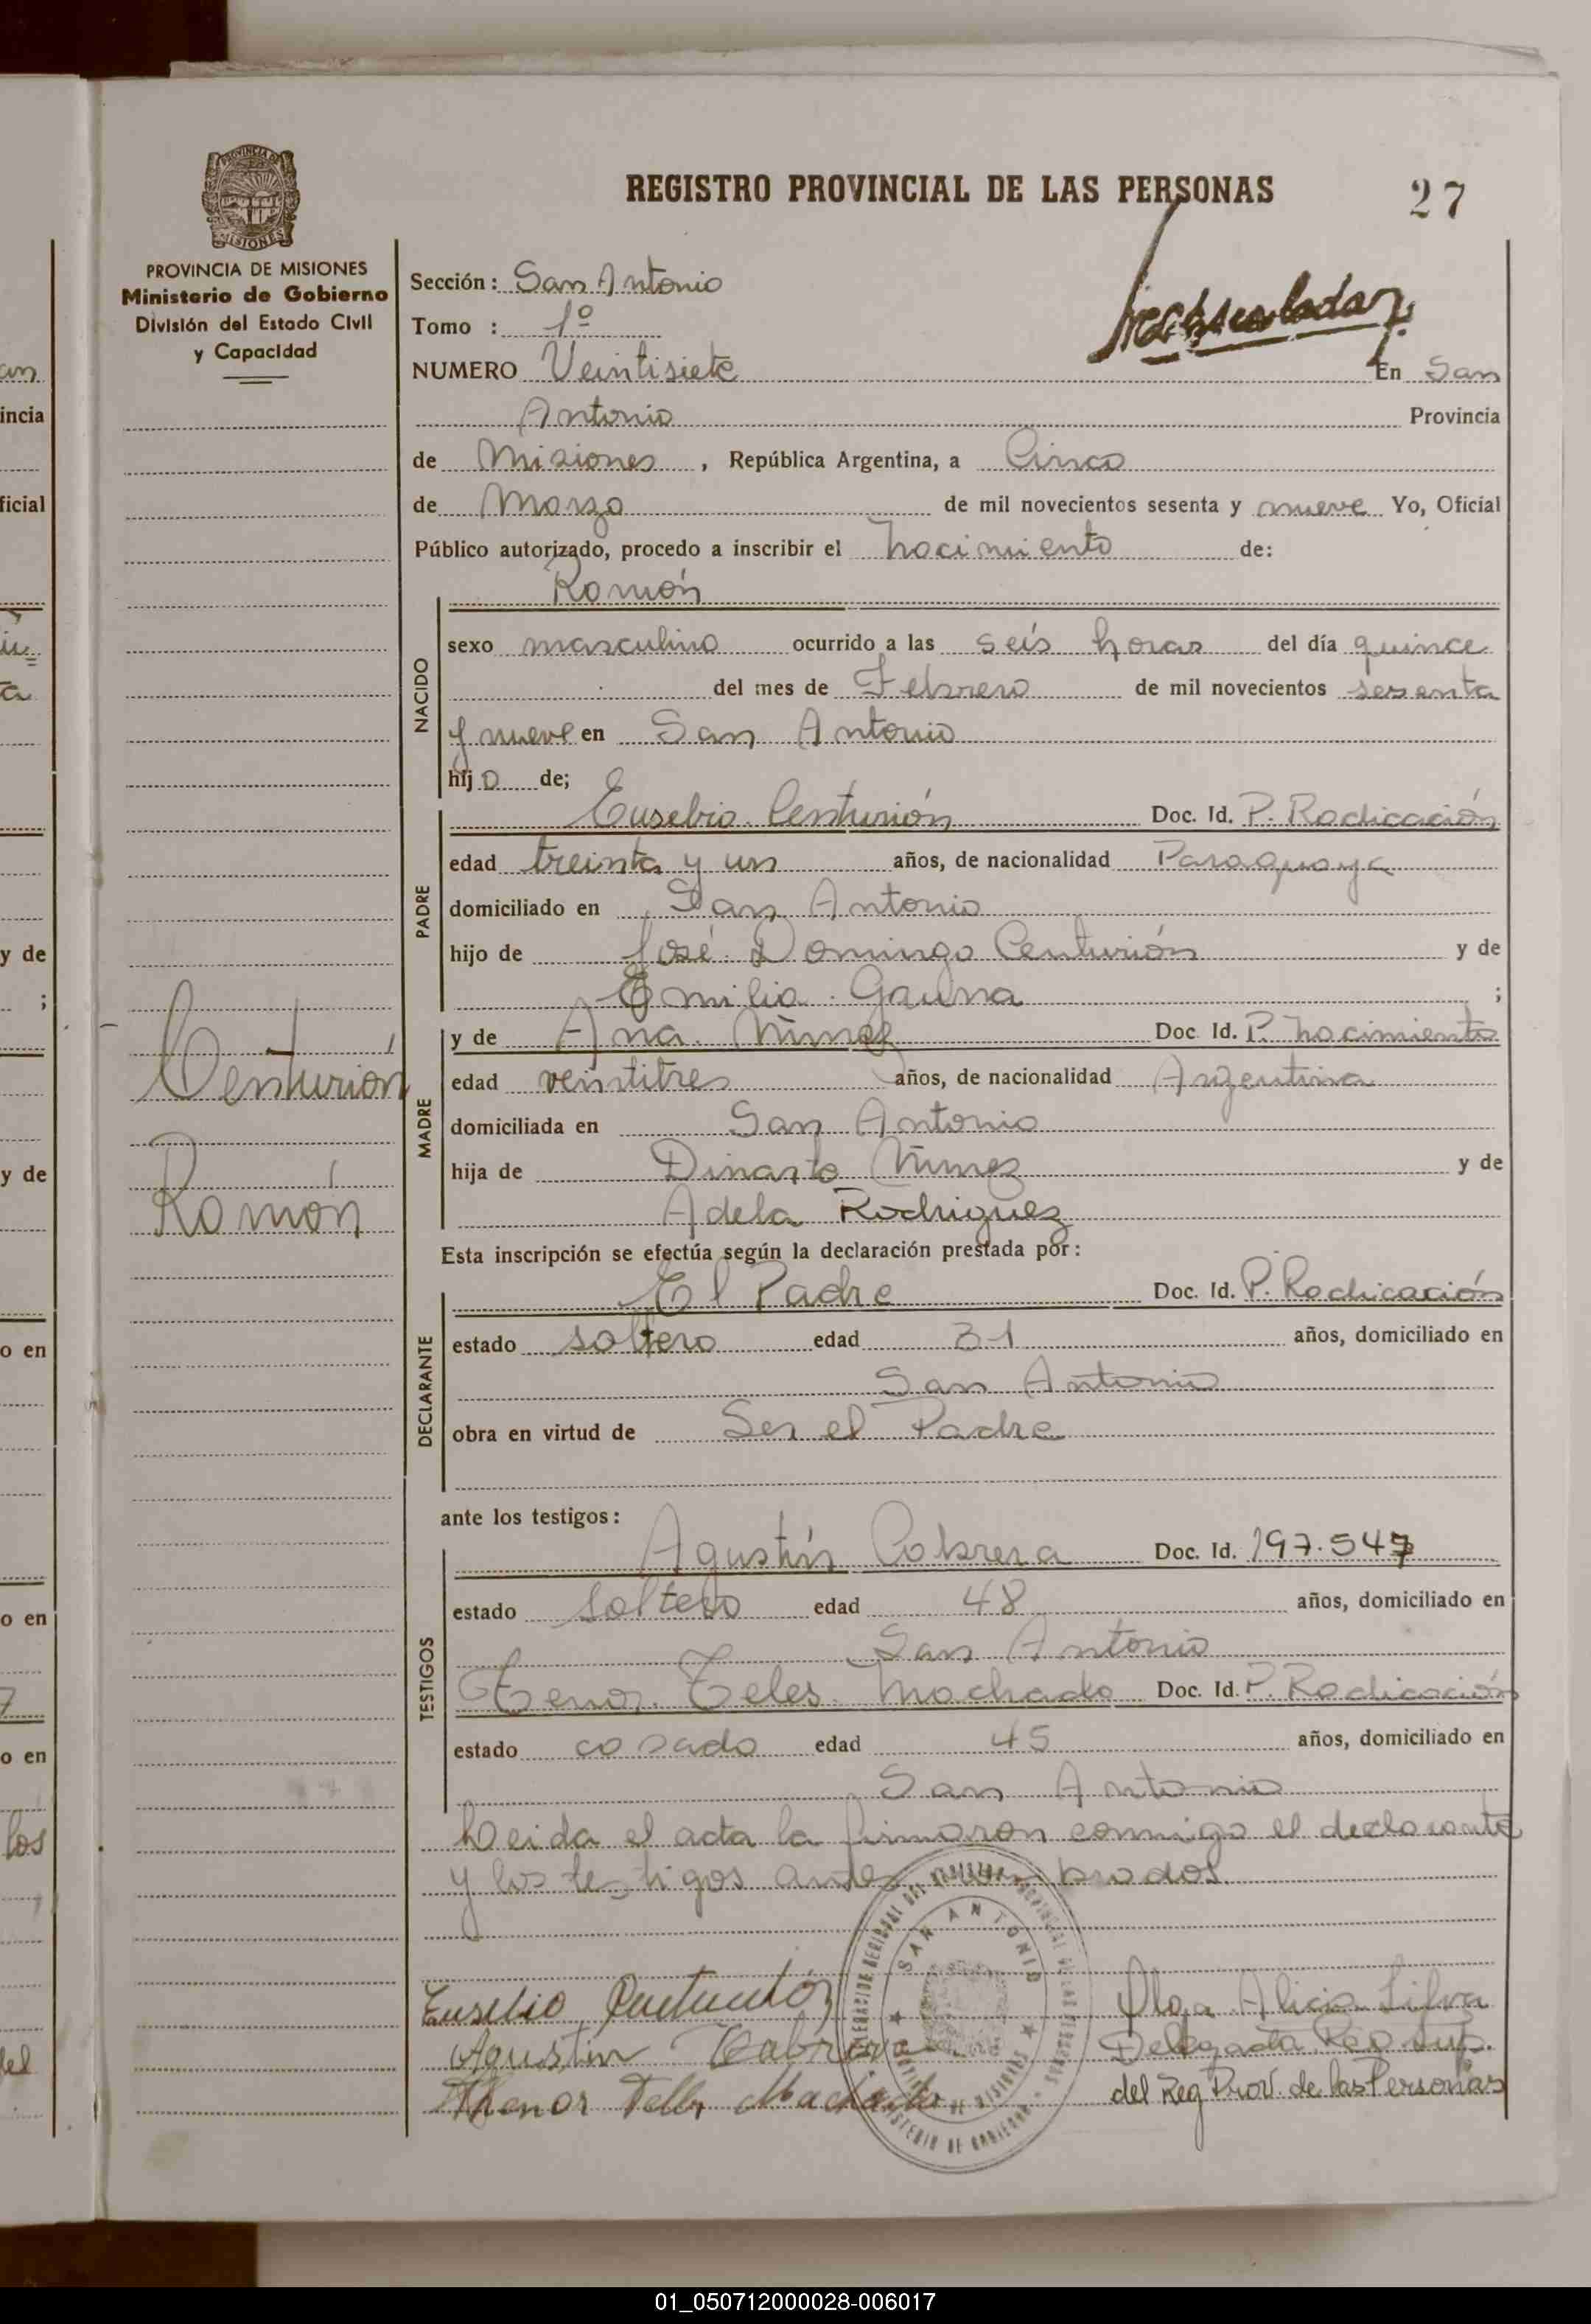 REGISTRO PROVINCIAL DE LAS PERSONAS 27
PROVINCIA DE MISIONES
Ministerio de Gobierno
División del Estado Civil
y Capacidad
Centurión
Ramón
Sección: San Antonio
Tomo : 1º
NUMERO Veintisiete En San
Antonio Provincia
de Misiones, República Argentina, a Cinco
de Marzo de mil novecientos sesenta y nueve Yo, Oficial
Público autorizado, procedo a inscribir el nacimiento de:
Ramón
NACIDO
sexo masculino ocurrido a las seis horas del día quince
del mes de Febrero de mil novecientos sesenta
y nueve en San Antonio
hijo de;
PADRE
Eusebio Centurión Doc. Id. P. Radicación
edad treinta y un años, de nacionalidad Paraguaya
domiciliado en San Antonio
hijo de José Domingo Centurión y de
Emilia Gauna ;
MADRE
y de Ana Núnez Doc. Id. P. nacimiento
edad veintitres años, de nacionalidad Argentina
domiciliada en San Antonio
hija de Dinarto Núnez y de
Adela Rodriguez
Esta inscripción se efectúa según la declaración prestada por:
DECLARANTE
El Padre Doc. Id. P. Radicación
estado soltero edad 31 años, domiciliado en
San Antonio
obra en virtud de Ser el Padre
ante los testigos:
TESTIGOS
Agustín Cabrera Doc. Id. 197.547
estado soltero edad 48 años, domiciliado en
San Antonio
Teles Machado Doc. Id. P. Radicación
estado casado edad 45 años, domiciliado en
San Antonio
Leida el acta la firmaron conmigo el declarante
y los testigos antes nombrados.
SAN ANTONIO
Eusebio Centurión
Agustin Cabrera
Thenor Telles Machado
Olga Alicia Silva
Delegada Reg. Sup.
del Reg Prov. de las Personas
01_050712000028-006017